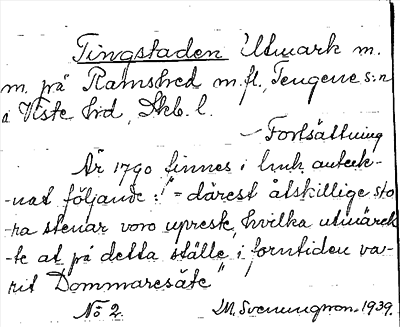 Tingstaden Utmark m.
m. på Ramshed m.fl., Tengene s:n
i Viste hd, Skb. l.
– Fortsättning
År 1790 finnes i luuk anteck-
-nat följande: "= därest åtskillige sto
ra stenar voro upreste, hvilka utmärck
-te at på detta ställe i forntiden va-
rit Dommaresäte"
No 2. M. Svenungson. 1939.